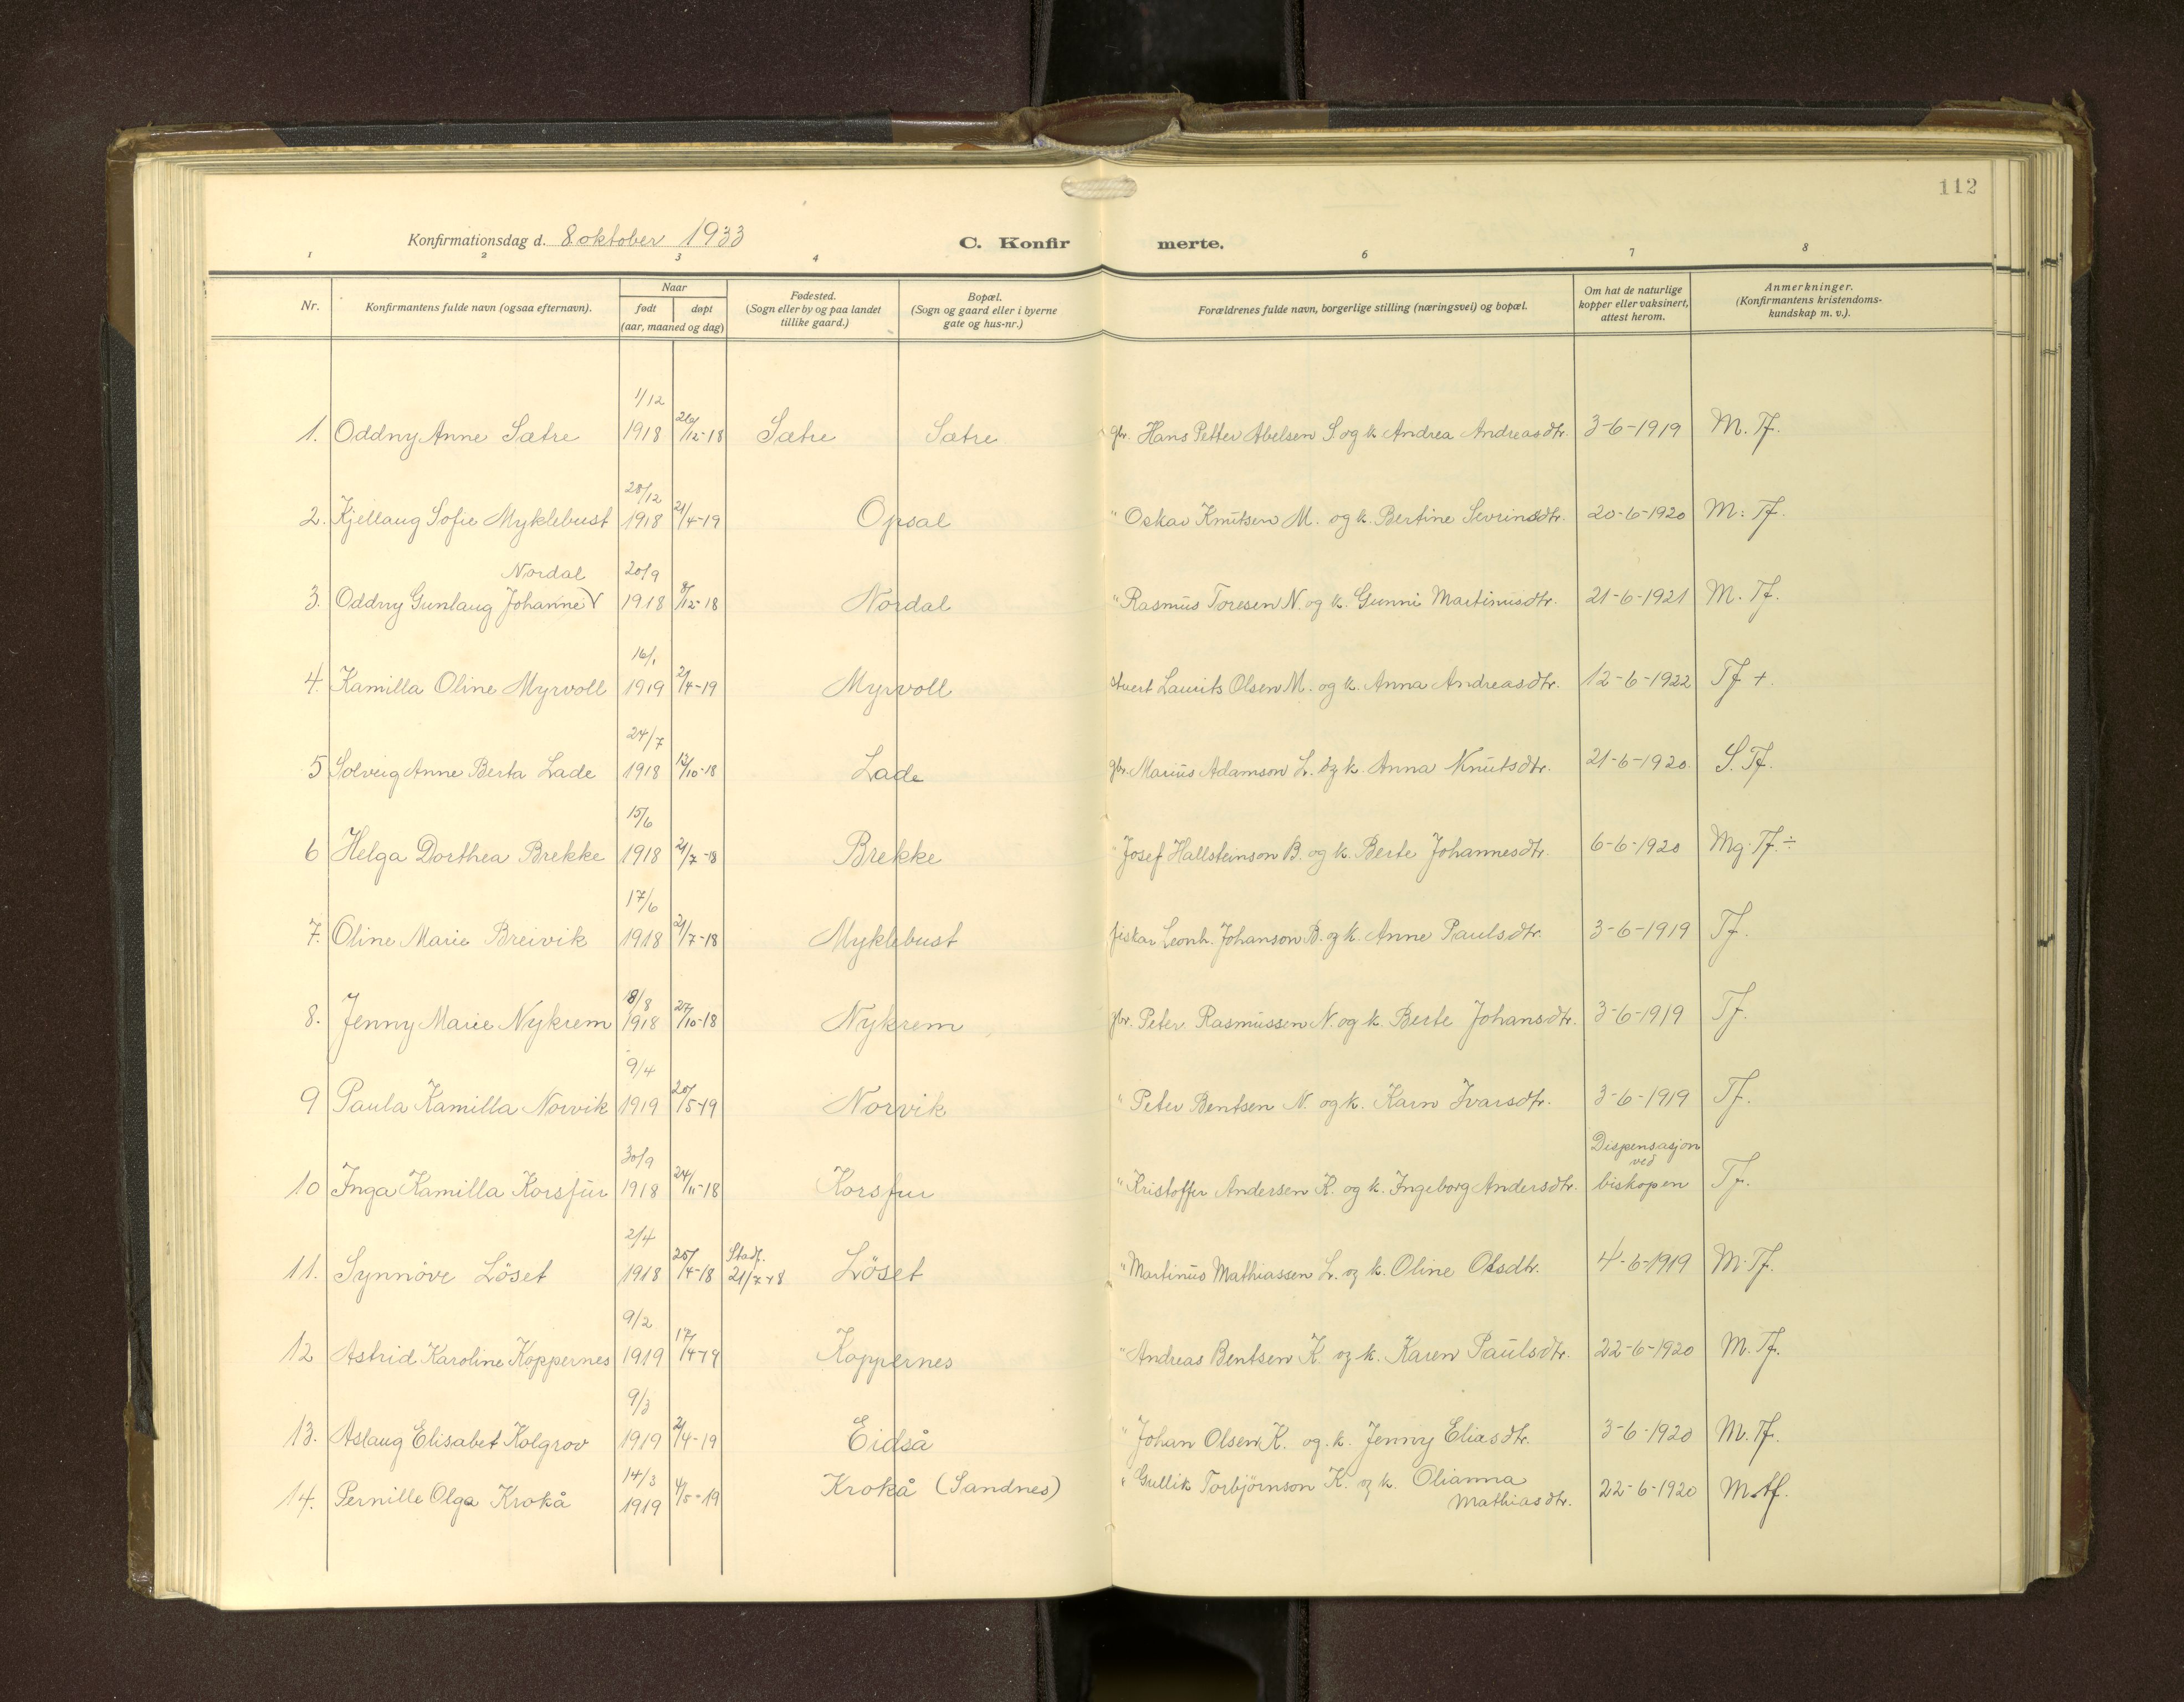 112
Konfirmationsdag d. 8. oktober 1933
C. Konfirmerte.
1 2 3 4 6 7 8
Nr.
Konfirmantens fulde navn (ogsaa efternavn).
Naar
født døpt
(aar, maaned og dag)
Fødested.
(Sogn eller by og paa landet
tillike gaard.)
Bopæl.
(Sogn og gaard eller i byerne
gate og hus-nr.)
Forældrenes fulde navn, borgerlige stilling (næringsvei) og bopæl.
Om hat de naturlige
kopper eller vaksinert,
attest herom.
Anmerkninger.
(Konfirmantens kristendoms-
kundskap m. v.).
1/12
1. Oddny Anne Sætre 1918 26/12-18 Sætre Sætre gbr. Hans Petter Abelsen S og k. Andrea Andreasdtr. 3-6-1919 M. Tf.
28/12
2. Kjellaug Sofie Myklebust 1918 21/4-19 Opsal " Oskar Knutsen M. og k. Bertine Sevrinsdtr. 20-6-1920 M: Tf.
Nordal 20/9
3. Oddny Gunlaug Johanne V 1918 8/12-18 Nordal " Rasmus Toresen N. og k. Gunni Martinusdtr. 21-6-1921 M. Tf.
16/1
4. Kamilla Oline Myrvoll 1919 21/4-19 Myrvoll Laurits Olsen M. og k. Anna Andreasdtr. 12-6-1922 Tf +.
24/7
5 Solveig Anne Berta Lade 1918 13/10-18 Lade gbr. Marius Adamson L. og k. Anna Knutsdtr. 21-6-1920. S. Tf.
15/6
6 Helga Dorthea Brekke 1918 21/7-18 Brekke " Josef Hallsteinson B. og k. Berte Johannesdtr. 6-6-1920 Mg. Tf. ÷
17/6
7. Oline Marie Breivik 1918 21/7-18 Myklebust fiskar Leonh. Johanson B. og k. Anne Paulsdtr. 3-6-1919 Tf.
18/8
8. Jenny Marie Nykrem 1918 27/10-18 Nykrem gbr. Peter Rasmussen N. og k. Berte Johansdtr. 3-6-1919 Tf.
9/4
9 Paula Kamilla Norvik 1919 20/5-19 Norvik " Peter Bentsen N. og k. Karn Ivarsdtr. 3-6-1919 Tf.
30/9 Dispensasjon
ved
10 Inga Kamilla Korsfur 1918 24/11-18 Korsfur " Kristoffer Andersen K. og k. Ingeborg Andersdtr. biskopen Tf.
2/4 Stadf.
11. Synnöve Löset 1918 25/4-18 21/7-18 Löset " Martinus Mathiassen L. og k. Oline Olsdtr. 4-6-1919 M. Tf.
9/2
12 Astrid Karoline Koppernes 1919 17/4-19 Koppernes " Andreas Bentsen K. og k. Karen Paulsdtr. 22-6-1920 M. Tf.
9/3
13. Aslaug Elisabet Kolgrov 1919 21/4-19 Eidså " Johan Olsen K. og. k. Jenny Eliasdtr. 3-6-1920 M. Tf.
14/3
14. Pernille Olga Krokå 1919 4/5-19 Krokå (Sandnes) " Gullik Torbjörnson K. og k. Olianna 22-6-1920 M. Tf.
Mathiasdtr.